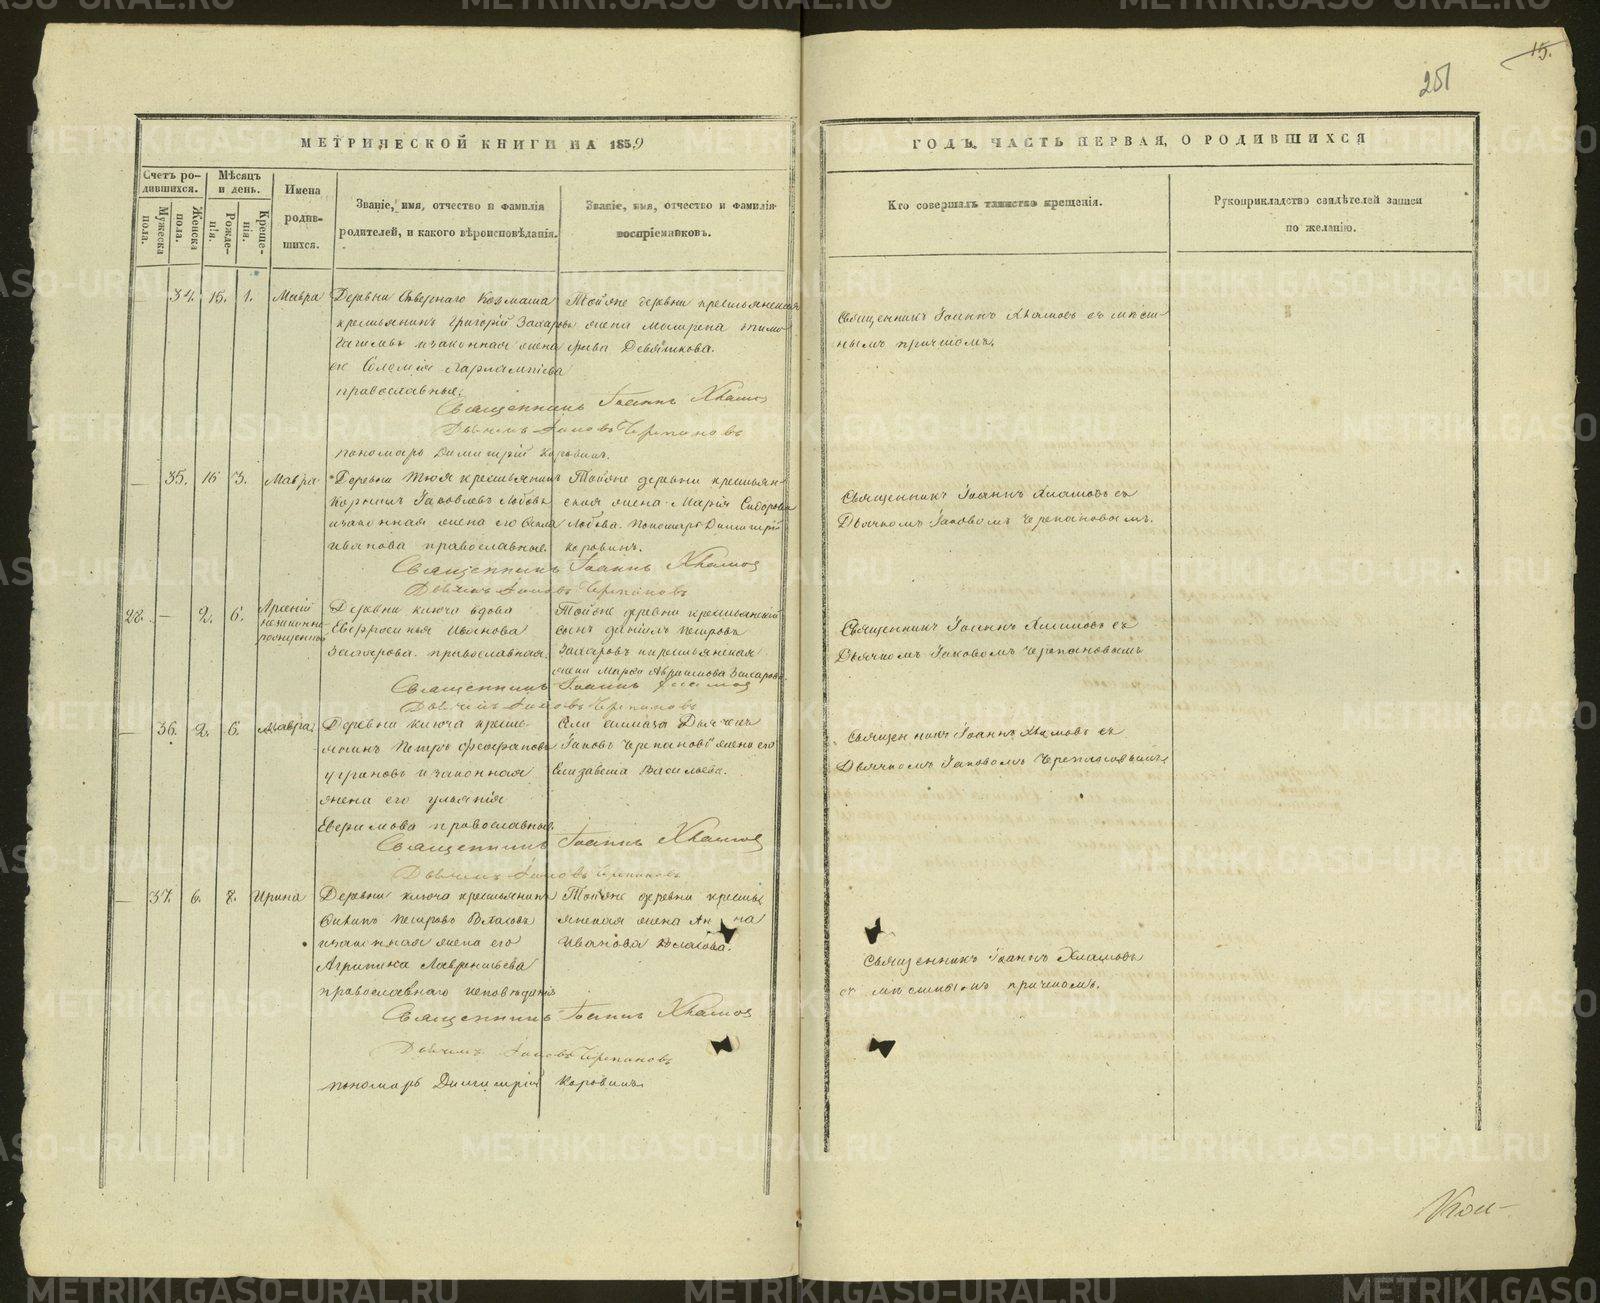 15.
251
МЕТРИЧЕСКОЙ КНИГИ НА 1859
ГОДЪ, ЧАСТЬ ПЕРВАЯ, О РОДИВШИХСЯ
Счетъ ро-
дившихся.
Мѣсяцъ
и день.
Мужеска
пола.
Женска
пола.
Рожде-
нія.
Креще-
нія.
Имена
родив-
шихся.
Званіе, имя, отчество и фамилія
родителей, и какого вѣроисповѣданія.
Званіе, имя, отчество и фамилія
воспріемниковъ.
Кто совершалъ таинство крещенія.
Рукоприкладство свидѣтелей записи
по желанію.
— 34. 15. 1. Мавра
Деревни
крестьянинъ Григорій Захаровъ
законная жена
православные.
Тойже деревни крестьянская
жена Матрена Тимо-
фѣева Девяткова.
Священникъ Іоаннъ Хламовъ съ мѣст-
нымъ причтомъ.
Священникъ Іоаннъ Хламовъ
Дьячекъ Іаковъ Черепановъ
пономарь Димитрій Коровинъ.
— 35. 15 3. Мавра
Деревни Тюя крестьянинъ
Корнилъ Іаковлевъ Любовъ
и законная жена его
Иванова православные.
Тойже деревни крестьян-
ская жена Марія Сидорова
Любова. Пономарь Димитрій
Коровинъ.
Священникъ Іоаннъ Хламовъ съ
Дьячкомъ Іаковомъ Черепановымъ.
Священникъ Іоаннъ Хламовъ
Дьячекъ Іаковъ Черепановъ
28. — 2. 6. Арсеній
незаконно
рожденный
Деревни ключа вдова
Евфросинья Иванова
Захарова. православная.
Тойже деревни крестьянскій
сынъ Даніилъ Петровъ
Захаровъ и крестьянская
жена Марфа Авраамова Захарова.
Священникъ Іоаннъ Хламовъ съ
Дьячкомъ Іаковомъ Черепановымъ
Священникъ Іоаннъ Хламовъ
Дьячекъ Іаковъ Черепановъ
— 36. 2. 6. Мавра
Деревни ключа кресть-
янинъ Петръ
и законная
жена его Ульянія
Ефимова православные.
Дьячекъ
Іаковъ Черепановъ жена его
Елизавета Васильева.
Священникъ Іоаннъ Хламовъ съ
Дьячкомъ Іаковомъ Черепановымъ
Священникъ Іоаннъ Хламовъ
Дьячекъ Іаковъ Черепановъ
— 37. 6. 8. Ирина
Деревни ключа крестьянинъ
Петровъ Власовъ
и законная жена его
Агрипина Лаврентьева
православнаго исповѣданія
Тойже деревни кресть-
янская жена Анна
Иванова Власова.
Священникъ Іоаннъ Хламовъ
съ мѣстнымъ причтомъ.
Священникъ Іоаннъ Хламовъ
Дьячекъ Іаковъ Черепановъ
пономарь Димитрій Коровинъ
METRIKI.GASO-URAL.RU